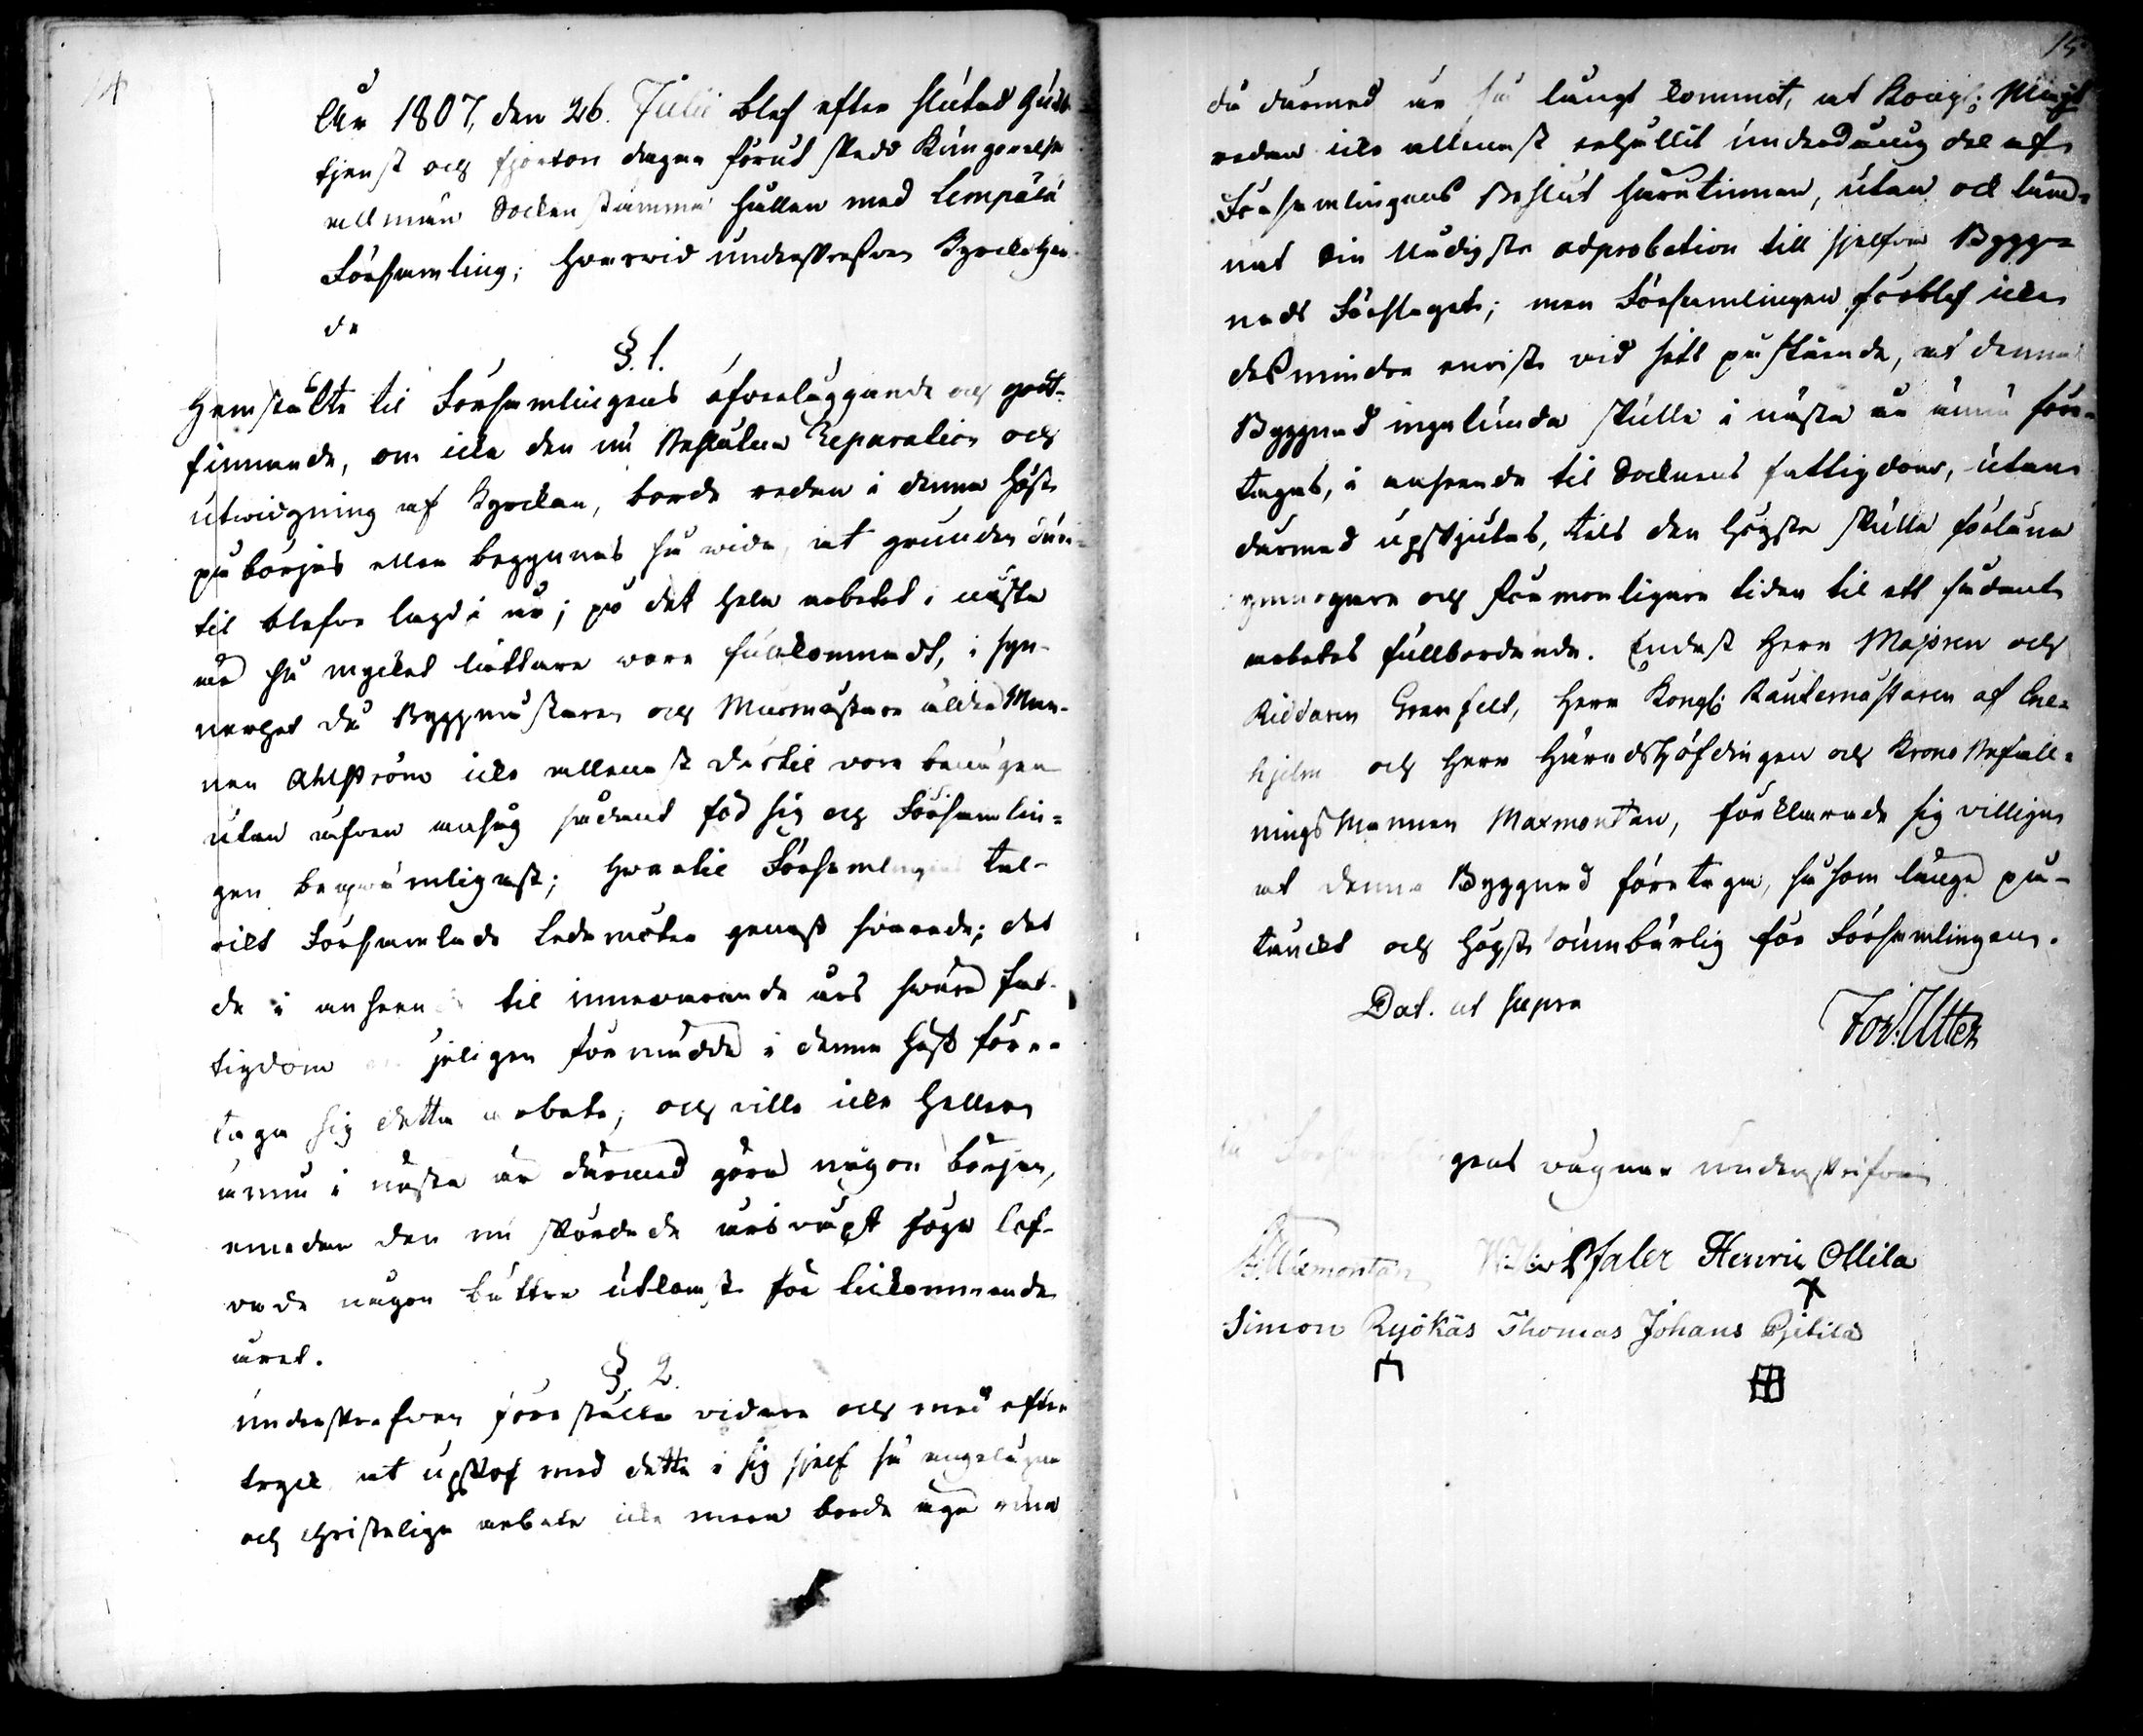 14
År 1807, den 26. Julii blef efter slutad Guds-
tjenst och fjorton dagar förut skedd Kungörelse
allmän Sockenstämma hållen med Lempälä
Församling; hvarvid underskrefven Kyrckoher-
de
§. 1.
Hemstälte til Församlingens öfverläggande och godt-
finnande, om icke den nu beslutna Reparation och
utwidgning af Kyrckan, borde redan i denna höst
påbörjas eller begynnas så vida, at grunden där-
til blefve lagd i år; på det hela arbetet i nästa
år så mycket lättare vore fulkomnadt, i syn-
nerhet då Byggmästaren och Murmästare ålder Man-
nen Ahlström icke allenast dertil vore benägen
utan äfven ansåg sådant för sig och Församlin-
gen beqvämligast; hvartil Församlingens tal-
rikt Församlade Ledamöter genast svarade; det
de i anseende til innevarande års svåra fat-
tigdom jeligen förmådde i denna höst före-
taga sig detta arbete, och ville icke heller
ännu i nästa år därmed göra någon början,
emedan den nu skördade årsväxt föga lof-
vade någon bättre utkomst för tilkommande
året.
§. 2.
Underskrefven förestälte vidare och med efter
tryck at upskof med detta i sig sjelf så angelägna
och christeliga arbete icke mera borde äga rum
15
då därmed är så långt kommit, at Kongl: Majt
redan icke allenast erhållit underdånig del af
Församlingens Beslut härutinnan, utan ock läm-
nat Sin Nådigste adprobation till sjelfva Bygg-
nads Förslaget; men Församlingen förblef icke
desmindre envist vid sitt påstående, at denna
Byggnad ingalunda skulle i nästa år ännu före-
tagas, i anseende til Sockens fattigdom, utan
därmed upskjutas, tils den högste skulle förläna
ymnogare och förmonligare tider til ett sådant
arbetes fullbordande. Endast Herr Majoren och
Riddaren Grenfelt, Herr Kongl: Räntemästaren af Enе-
hjelm och Herr Häradshöfdingen och Krono Befall-
ningsMannen Maxmontan, förklarade sig villiga
at denna Byggnad företaga, såsom länge på-
tänckt och högst oumbärlig för Församlingen.
Dat. ut supra
For. Utter
gens vägnar underskrifven
Maxmontan Pfaler Henric Ollila
Simon Ryökäs Thomas Johans Pjetilä